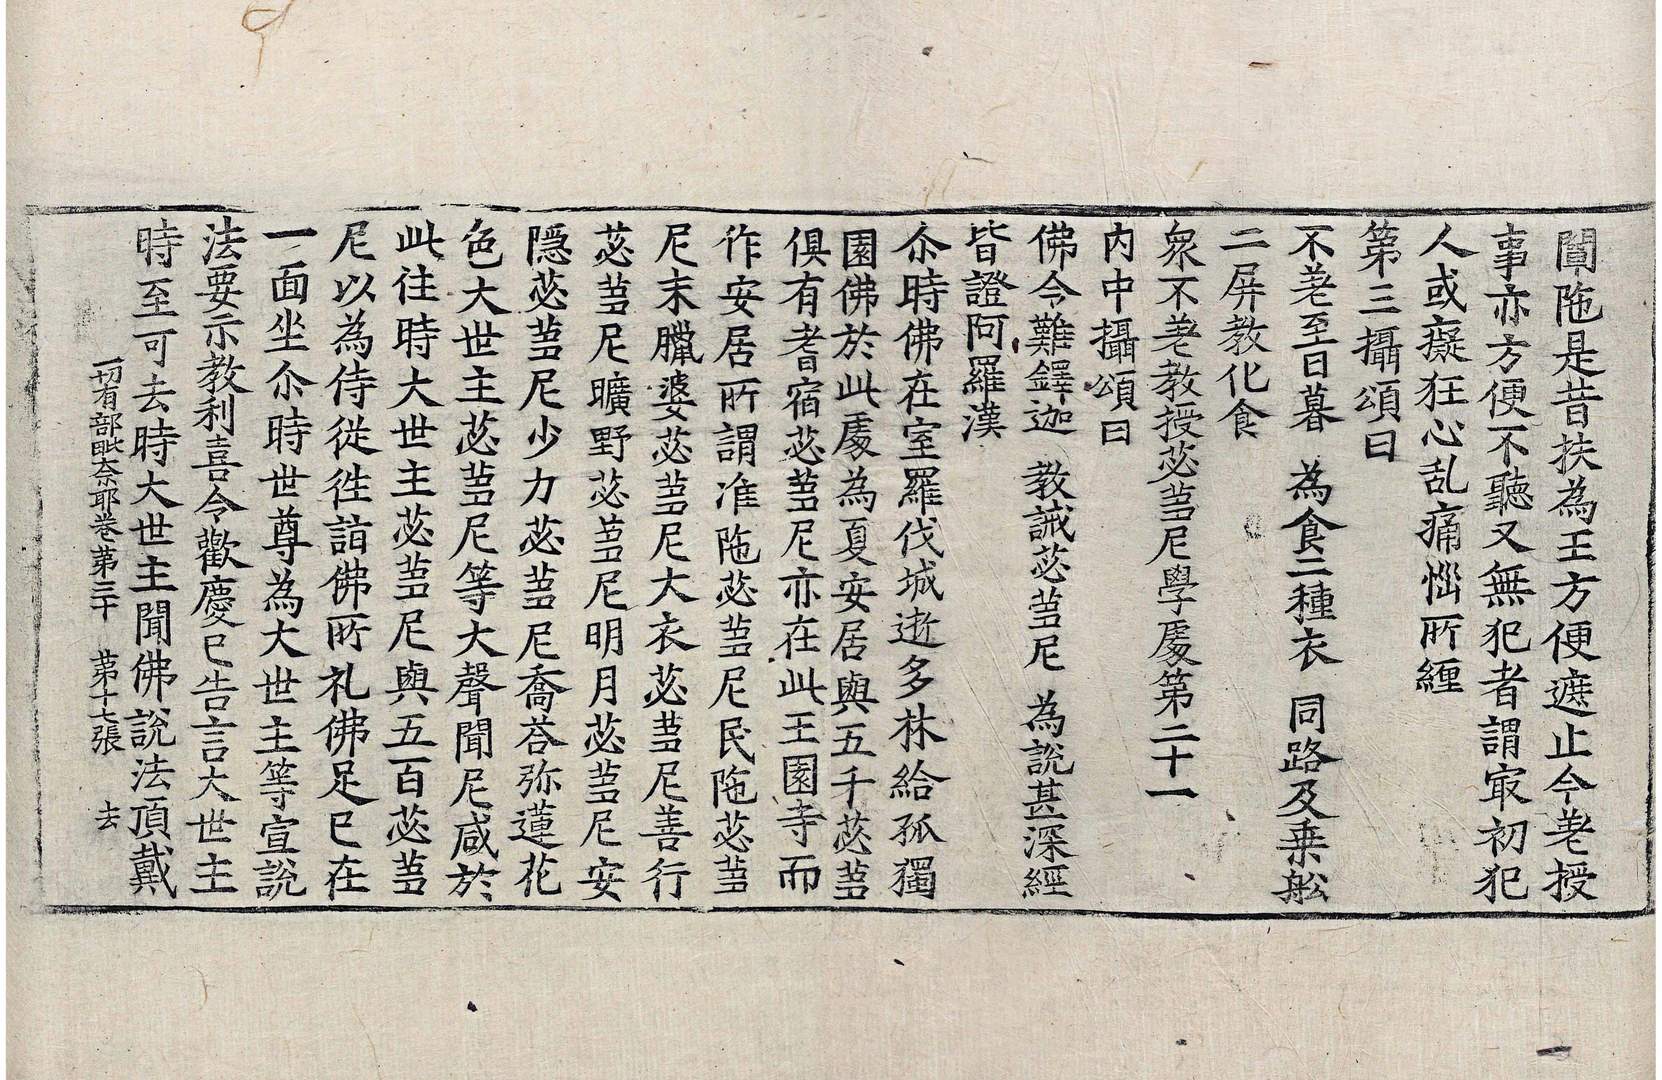 闡陁是昔扶為王方便遮止今差授
事亦方便不聽又無犯者謂㝡初犯
人或癡狂心乱痛惱所纏
第三攝頌曰
不差至日暮　為食二種衣　同路及乗舩
二屏教化食
衆不差教授苾蒭尼學處第二十一
內中攝頌曰
佛令難鐸迦　教誡苾蒭尼　為說甚深經
皆證阿羅漢
尒時佛在室羅伐城逝多林給孤獨
園佛於此處為夏安居與五千苾蒭
俱有耆宿苾蒭尼亦在此王園寺而
作安居所謂准陁苾蒭尼民陁苾蒭
尼末臘婆苾蒭尼大衣苾蒭尼善行
苾蒭尼曠野苾蒭尼明月苾蒭尼安
隱苾蒭尼少力苾蒭尼喬荅弥蓮花
色大世主苾蒭尼等大聲聞尼咸於
此住時大世主苾蒭尼與五百苾蒭
尼以為侍從徃詣佛所礼佛足已在
一面坐尒時世尊為大世主等宣說
法要示教利喜令歡慶已告言大世主
時至可去時大世主聞佛說法頂戴
一切有部毗奈耶卷第三十　第十七張　去